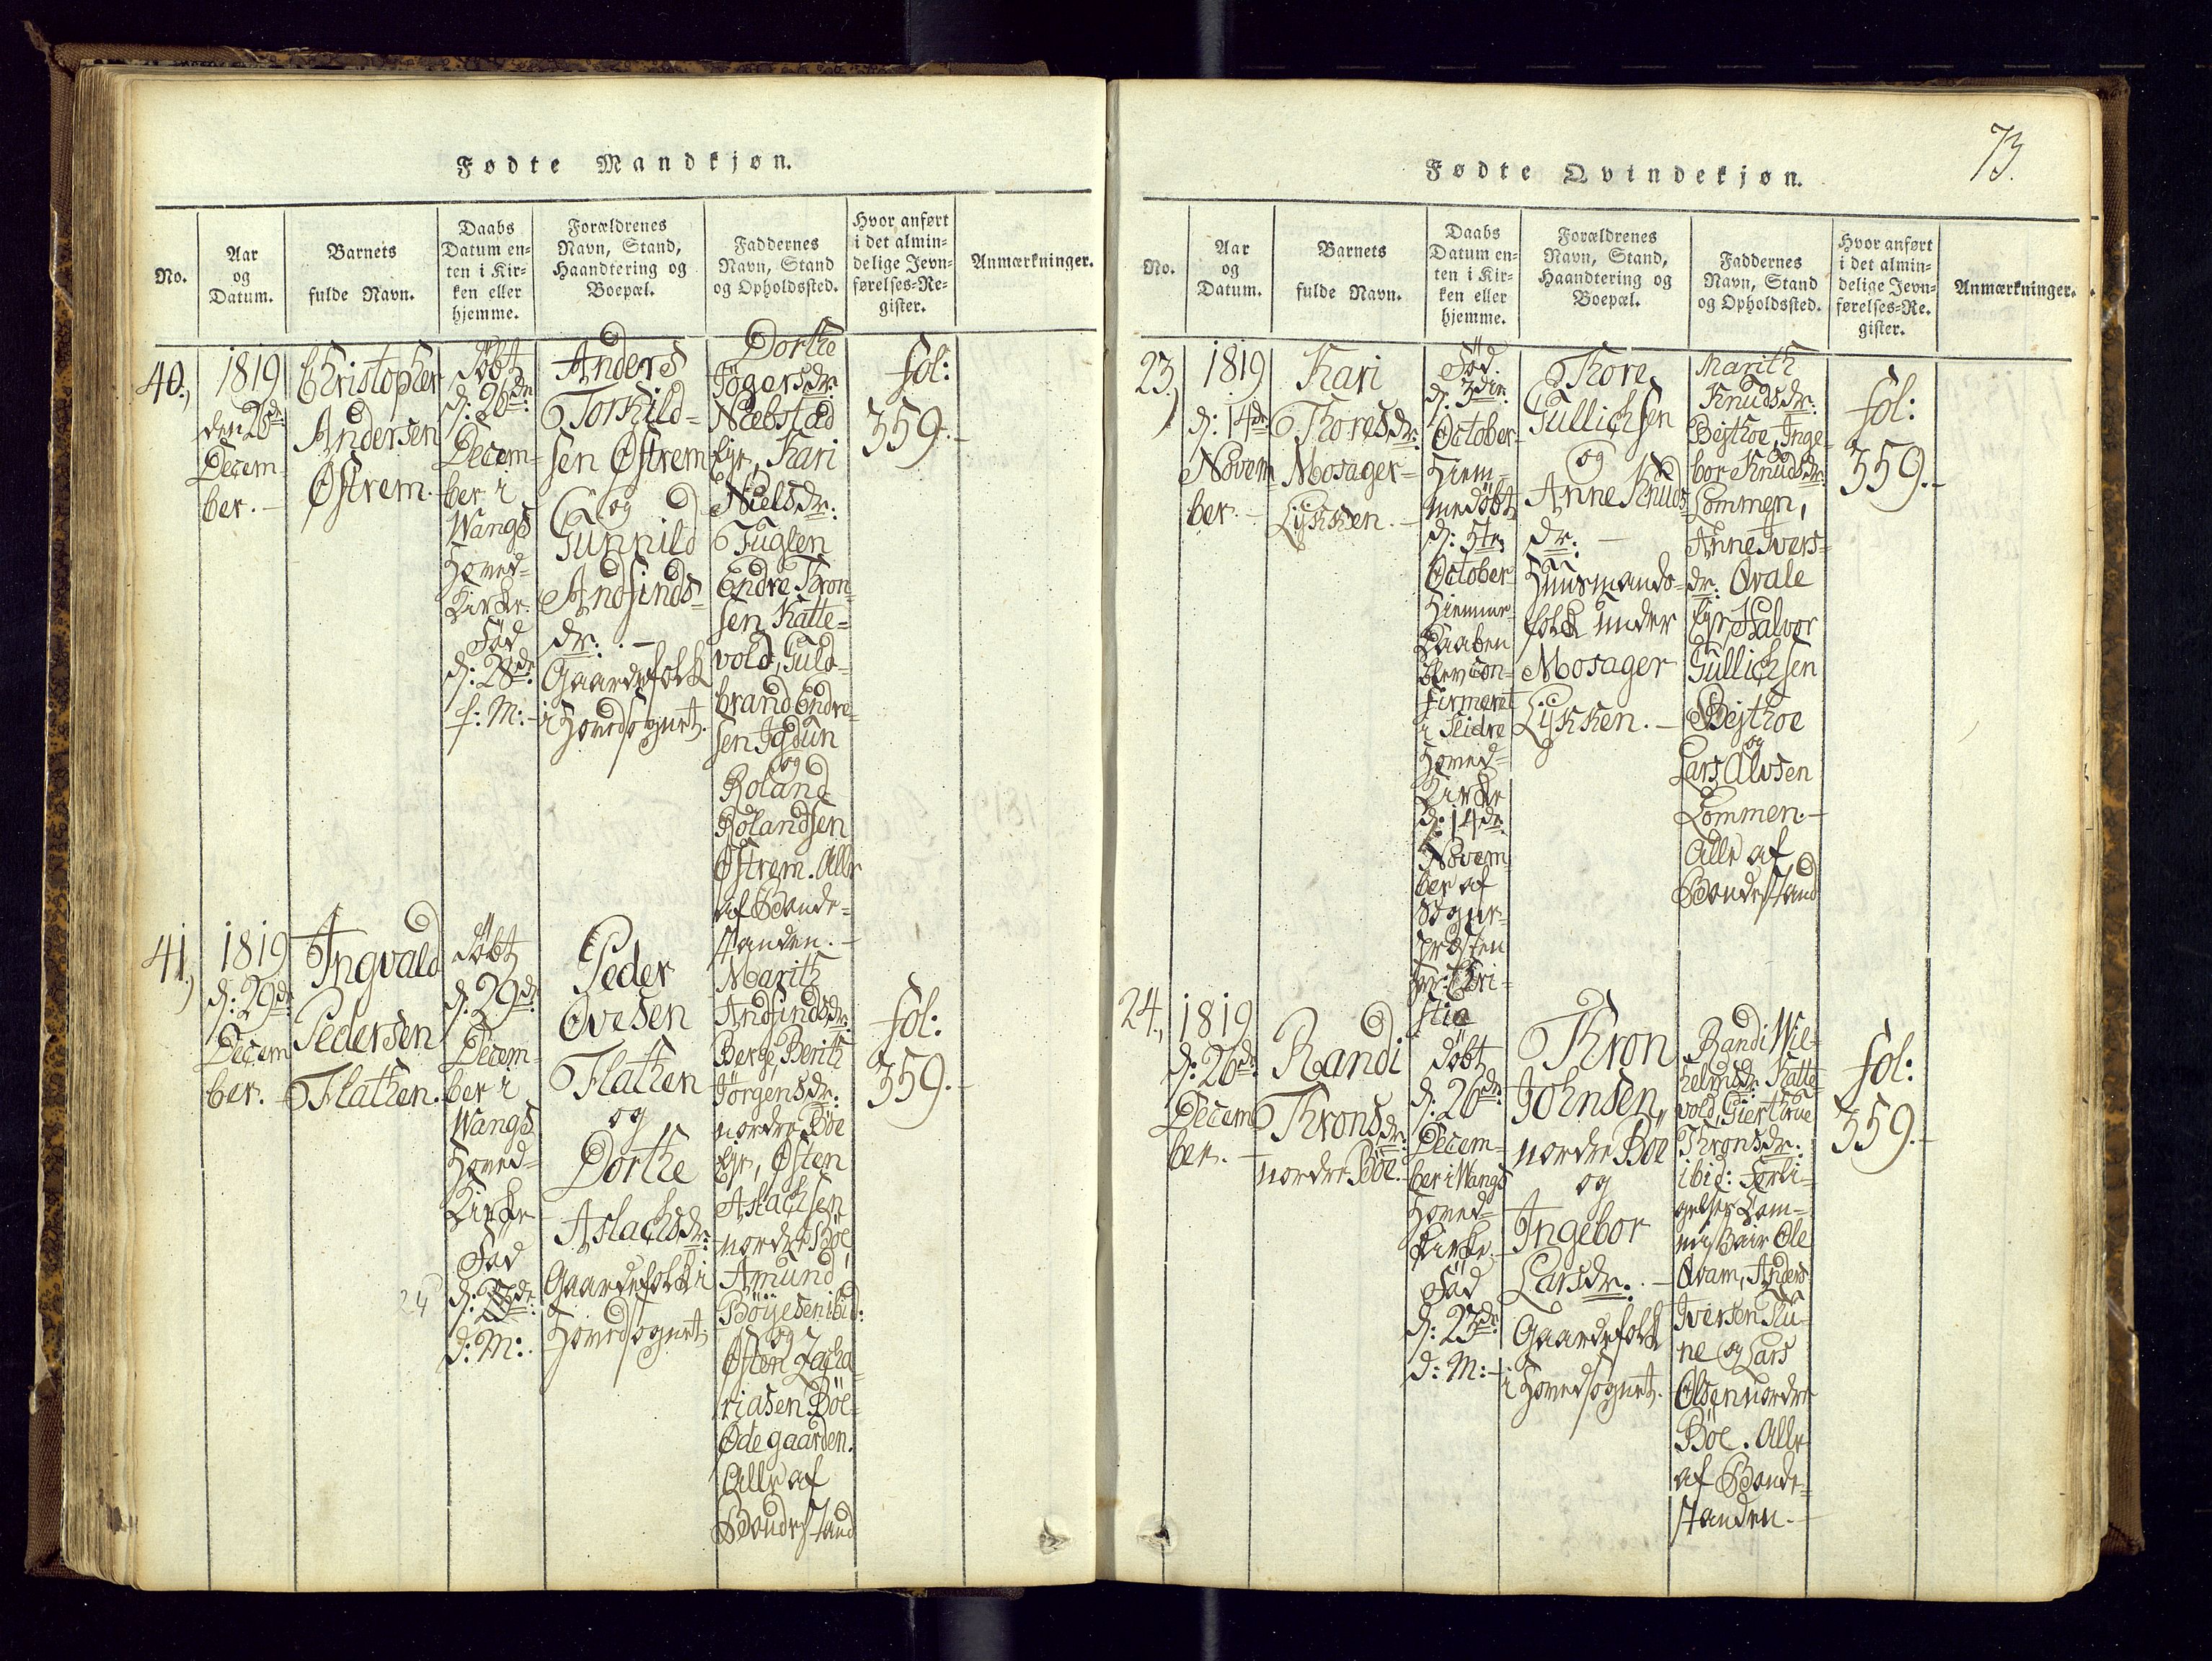 Fødte Mandkjøn.
No.
Aar
og
Datum.
Barnets
fulde Navn.
Daabs
Datum en-
ten i Kir-
ken eller
hjemme.
Forældrenes
Navn, Stand,
Haandtering og
Boepæl.
Faddernes
Navn, Stand
og Opholdssted.
Hvor anført
i det almin-
delige Jevn-
førelses-Re-
gister.
Anmærkninger.
40.,
1819
den 26de
Decem-
ber. -
Christopher
Andersen
Østrem.
Döbt
d: 26de
Decem-
ber i
Wangs
Hoved-
Kirke.
Föd
d: 28de
f: M: -
Anders
Torkild-
sen Østrem
og
Gunnild
Andfinds-
dr: . -
Gaardefolk
i Hovedsognet.
Dorthe
Jögersdr:
Næbstad
Eje, Kari
Nielsdr:
Tuglen
Endre Thron-
sen Katte-
vold, Guld-
brand Endre-
sen Jgdun
og
Roland
Rolandsen
Østrem. Alle
af Bonde-
standen. -
fol:
359. -
41.,
1819
d: 29de
Decem
ber. -
Ingvald
Pedersen
Flathen.
Döbt
d: 29de
Decem-
ber i
Wangs
Hoved-
Kirke
Föd
24
d:
d: M: .
Peder
Ovesen
Flathen
og
Dorthe
Aslachsdr:
Gaardefolk i
Hovedsognet.
Marith
Andfindsdr:
Berge, Berith
Jörgensdr:
nordre Böe
Eje, Østen
Aslachsen
nordre Böe,
Amund
Böyesen ibid:
og
Østen Zacha-
riasen Böe-
Ödegaarden.
Alle af
Bondestand
fol:
359. -
73.
Fødte Qvindekjøn.
No.
Aar
og
Datum.
Barnets
fulde Navn.
Daabs
Datum en-
ten i Kir-
ken eller
hjemme.
Forældrenes
Navn, Stand,
Haandtering og
Boepæl.
Faddernes
Navn, Stand
og Opholdssted.
Hvor anført
i det almin-
delige Jevn-
førelses-Re-
gister.
Anmærkninger.
23.,
1819
d: 14de
Novem
ber. -
Kari
Thoresdr:
Mosager-
Lykken. -
Föd.
d: 3die
October
Hiem-
medöbt
d: 5te
October
Hiemme
Daaben
blev con-
firmeret
i Slidre
Hoved-
Kirke
d: 14de
Novem
ber af
Sogne-
præsten
Hr: Chri-
stie
Thore
Gullichsen
og
Anne Knuds
dr: -
Huusmands-
folk under
Mosager
Lykken. -
Marith
Knudsdr:
Bejthoe, Inge-
bor Knudsdr:
Lommen,
Anne Ivers-
dr: Qvale
Eje, Halvor
Gullichsen
Bejthoe
og
Lars Alvsen
Lommen. -
Alle af
Bondestand
fol:
359. -
24.,
1819
d: 26de
Decem
ber. -
Randi
Thronsdr:
nordre Böe.
Döbt
d: 26de
Decem-
ber i Wangs
Hoved-
Kirke.
Föd
d: 23de
d: M: -
Thron
Johnsen,
nordre Böe
og
Ingebor
Larsdr: . -
Gaardefolk
i Hovedsognet.
Randi Wil-
helmsdr: Katte-
vold, Gierthrue
Thronsdr:
ibid: Forli-
gelses Com-
missair Ole
Qvam, Anders
Iversen Ru-
ne og Lars
Olsen nordre
Böe. Alle
af Bonde-
standen. -
fol:
359. -